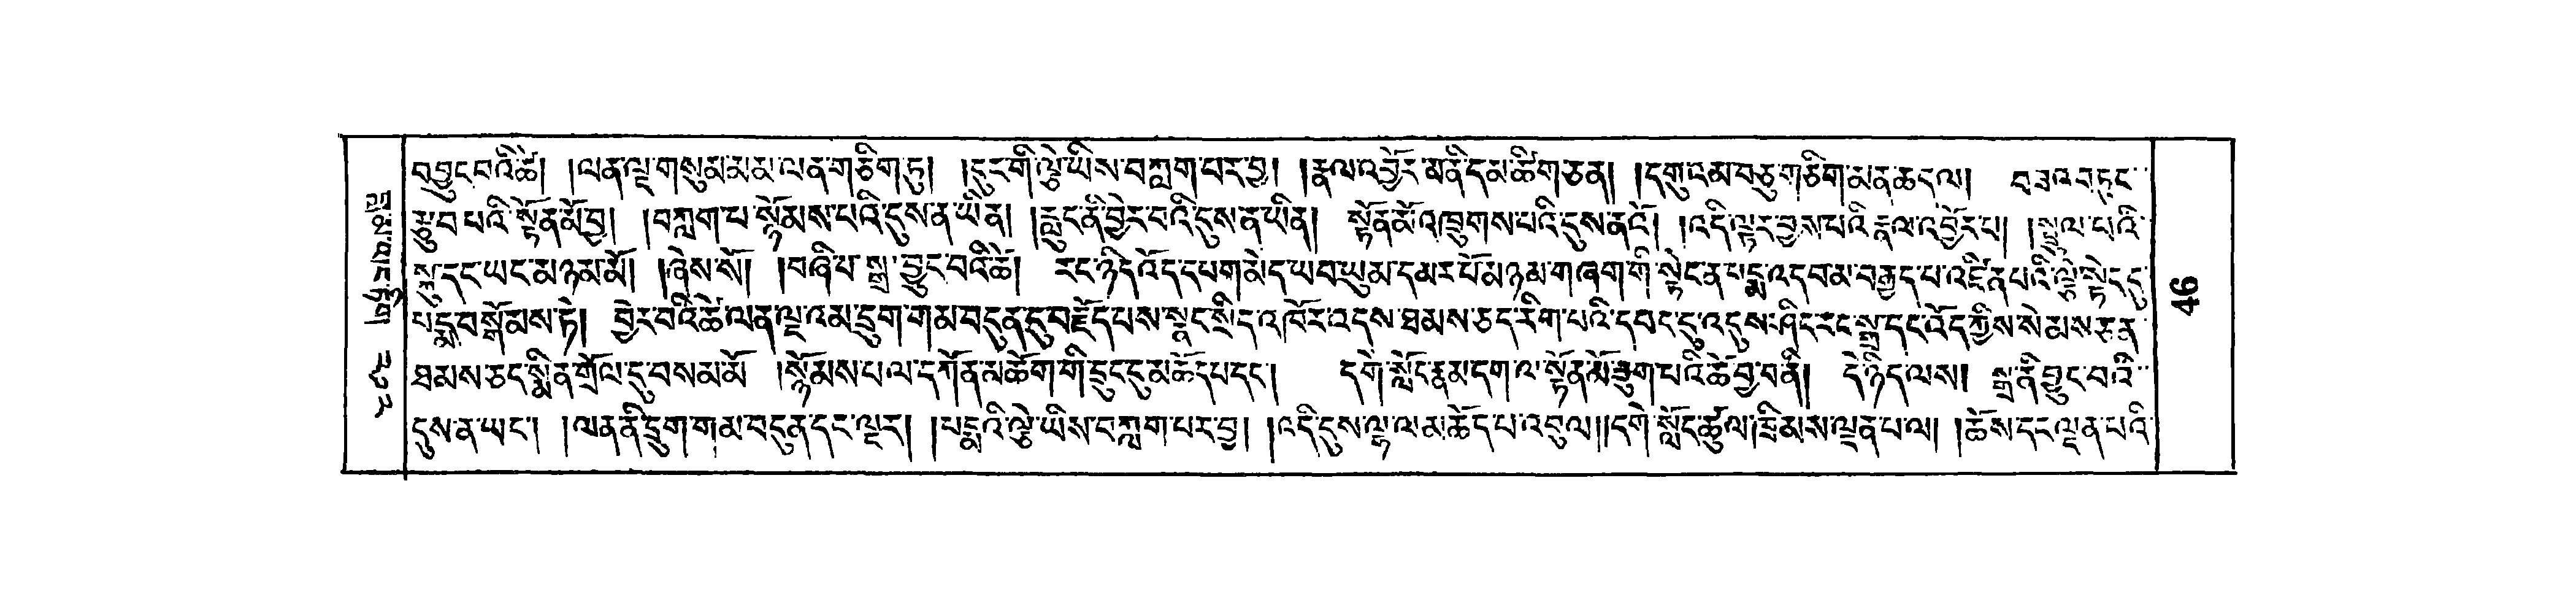 བབྱུང་བའི་ཚེ། །ལན་ལྔ་གསུམ་མམ་ལན་གཅིག་ཏུ། །དུར་གི་ལྕེ་ཡིས་བཀླག་པར་བྱ། །རྣལ་འབྱོར་མནི་དམ་ཚིག་ཅན། །དགུ་འམ་བཅུ་གཅིག་མན་ཆད་ལ། བཟའ་བཏུང་
རྩུབ་པའི་སྟོན་མོ་བྱ། །བཀླག་པ་སྙོམས་པའི་དུས་ན་ཡིན། །རླུང་ནི་བྱེར་བའི་དུས་ན་ཡིན། སྟོན་མོ་འཁྲུགས་པའི་དུས་ནའོ། །འདི་ལྟར་བྱས་པའི་རྣལ་འབྱོར་པ། །སྤྲུལ་པའི་
སྐུ་དང་ཡང་མཉམ་མོ། །ཞེས་སོ། །བཞི་པ་སྒྲ་བྱུང་བའི་ཚེ། རང་ཉིད་འོད་དཔག་མེད་ཡབ་ཡུམ་དམར་པོ་མཉམ་གཞག་གི་སྟེང་ན་པདྨ་འདབ་མ་བརྒྱད་པ་འཛིན་པའི་ལྕེ་སྟེང་དུ་
པདྨ་བསྒོམས་ཏེ། བྱེར་བའི་ཚེ་ལན་ལྔ་འམ་དྲུག་གམ་བདུན་དུ་བརྗོད་པས་སྣང་སྲིད་འཁོར་འདས་ཐམས་ཅད་རིག་པའི་དབང་དུ་འདུས་ཤིང་རང་སྒྲ་དང་འོད་ཀྱིས་སེམས་ཅན་
ཐམས་ཅད་སྨིན་གྲོལ་དུ་བསམ་མོ། །སྙོམས་པ་ལ་དཀོན་མཆོག་གི་དྲུང་དུ་མཆོད་པ་དང་། དགེ་སློང་རྣམ་དག་ལ་སྟོན་མོ་ཟུག་པའི་ཚེ་བྱ་བནི། དེ་ཉིད་ལས། སྒྲ་ནི་བྱུང་བའི་
དུས་ན་ཡང་། །ལན་ནི་དྲུག་གམ་བདུན་དང་ལྔར། །པདྨའི་ལྕེ་ཡིས་བཀླག་པར་བྱ། །འདི་དུས་ལྷ་ལ་མཆོད་པ་འབུལ།།དགེ་སློང་ཚུལ་ཁྲིམས་ལྡན་པ་ལ། །ཆོས་དང་ལྡན་པའི་